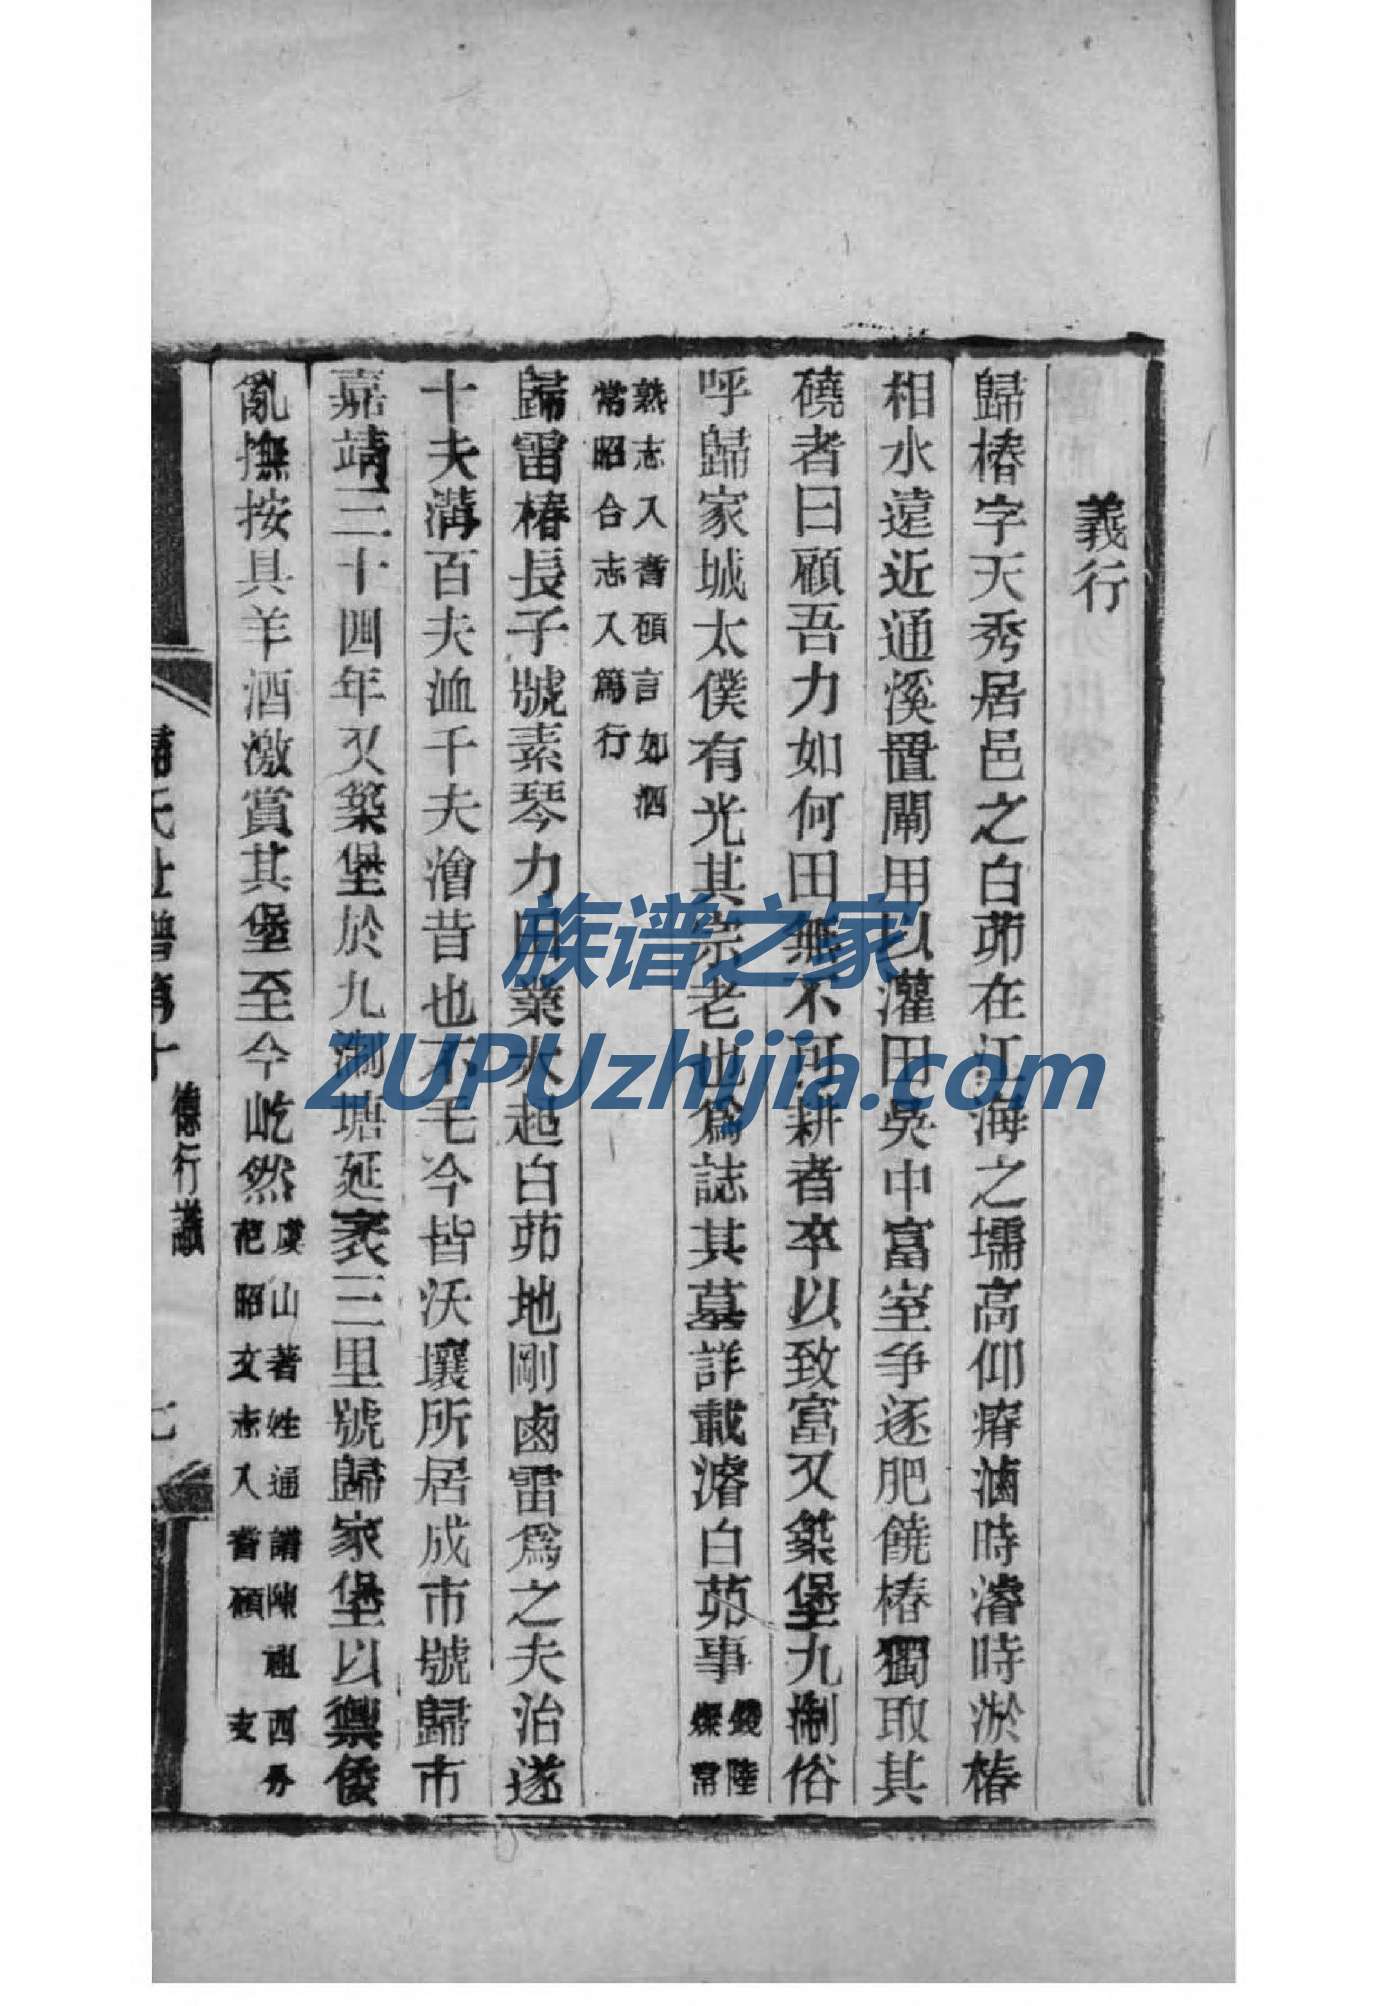 義行
歸椿字天秀居邑之白茆在江海之壖高仰瘠滷時濬時淤椿
相水遠近通溪置閘用以灌田吳中富室爭逐肥饒椿獨取其
磽者曰顧吾力如何田無不可耕者卒以致富又築堡九淛俗
呼歸家城太僕有光其宗老也為誌其墓詳載濬白茆事
錢陸燦常
熟志入耆碩言如泗
常昭合志入篤行
歸雷椿長子號素琴力田業大起白茆地剛鹵雷為之夫治遂
十夫溝百夫洫千夫澮昔也不毛今皆沃壤所居成市號歸市
嘉靖三十四年又築堡於九淛塘延袤三里號歸家堡以禦倭
亂撫按具羊酒激賞其堡至今屹然
虞山著姓通譜陳祖
范昭文志入耆碩
歸氏世譜第十
德行議
七
族谱之家
ZUPUzhijia.com